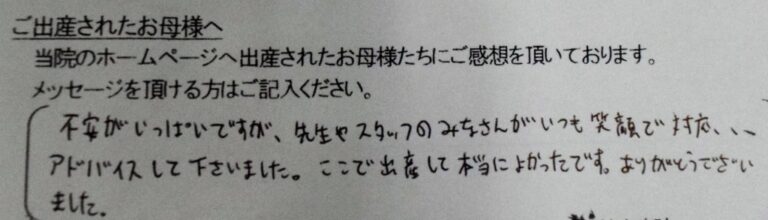 ご出産されたお母様へ
当院のホームページへ出産されたお母様たちにご感想を頂いております。
メッセージを頂ける方はご記入ください。
不安がいっぱいですが、先生やスタッフのみなさんがいつも笑顔で対応、、、
アドバイスして下さいました。ここで出産して本当によかったです。ありがとうござい
ました。